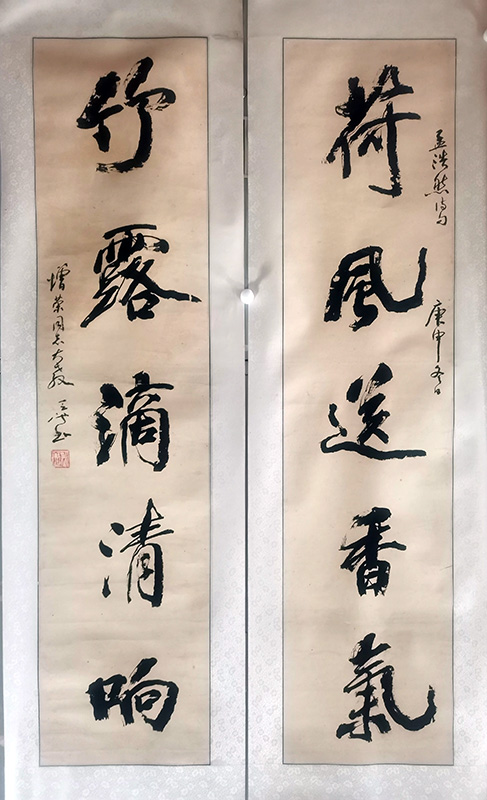 荷風送香氣
孟浩然詩句
庚申冬日
竹露滴清响
增榮同志大教